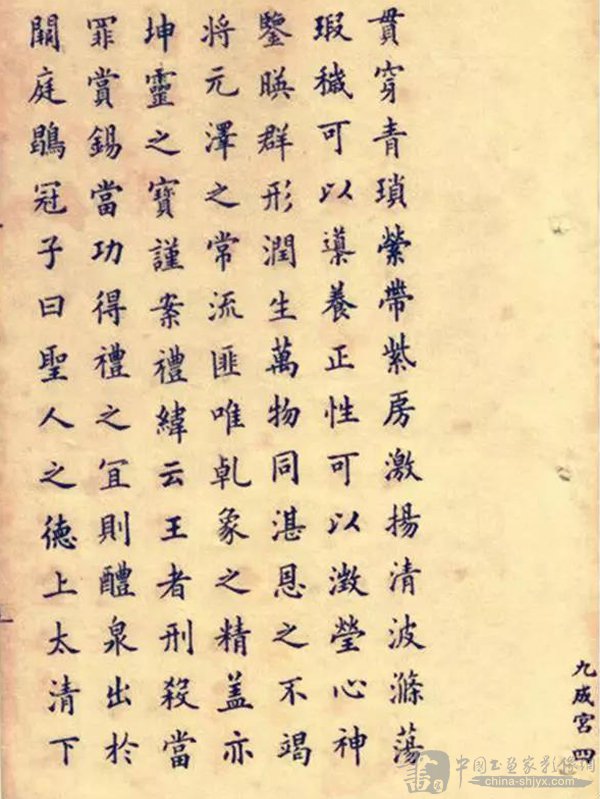 貫穿青瑣縈帶紫房激揚清波滌蕩
瑕穢可以導養正性可以澂瑩心神
鑒暎群形潤生萬物同湛恩之不竭
将元澤之常流匪唯乹象之精盖亦
坤靈之寶謹案禮緯云王者刑殺當
罪賞錫當功得禮之宜則醴泉出於
闕庭鶡冠子曰聖人之徳上太清下
九成宮 四
中国书画家影像网
www.china-shjyx.com